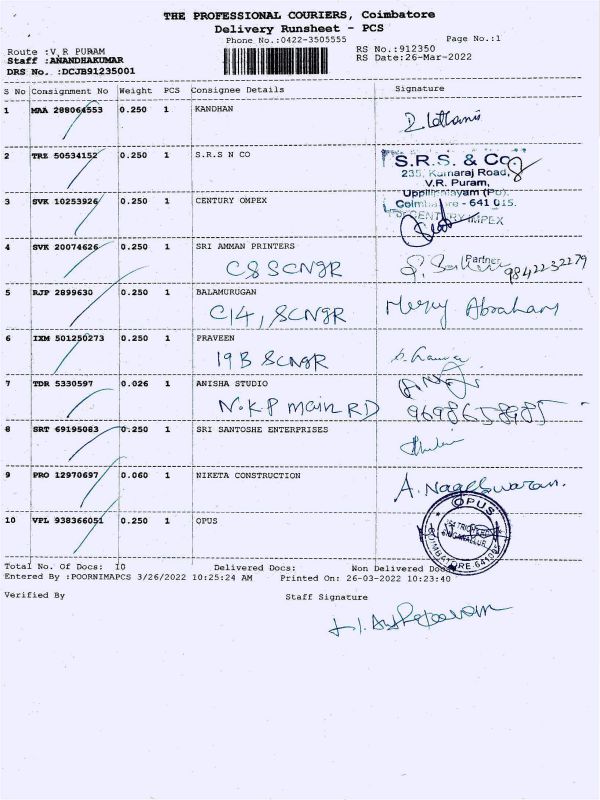 THE PROFESSIONAL COURIERS, Coimbatore
Delivery Runsheet - PCS
Phone No.:0422-3505555 Page No.:1
Route :V.R PURAM RS No.:912350
Staff :ANANDHAKUMAR RS Date:26-Mar-2022
DRS No. :DCJB91235001
S No Consignment No Weight PCS Consignee Details Signature
1 MAA 298064553 0.250 1 KANDHAN
2 TRZ 50534152 0.250 1 S.R.S N CO
S.R.S. & Co
235, Kamaraj Road,
V.R. Puram,
3 SVK 10253926 0.250 1 CENTURY OMPEX
Coimbatore - 641 015.
CENTURY IMPEX
4 SVK 20074626 0.250 1 SRI AMMAN PRINTERS
Partner
C8 SCNGR 9842232279
5 RJP 2899630 0.250 1 BALAMURUGAN
C14, SCNGR Mercy Abraham
6 IXM 501250273 0.250 1 PRAVEEN
19B SCNGR
7 TDR 5330597 0.026 1 ANISHA STUDIO
N.K.P main RD 9698658985
8 SRT 69195083 0.250 1 SRI SANTOSHE ENTERPRISES
9 PRO 12970697 0.060 1 NIKETA CONSTRUCTION
A. Nageswaran.
10 VPL 938366051 0.250 1 OPUS
OPUS
Total No. Of Docs: 10 Delivered Docs: Non Delivered Docs
Entered By :POORNIMAPCS 3/26/2022 10:25:24 AM Printed On: 26-03-2022 10:23:40
Verified By Staff Signature